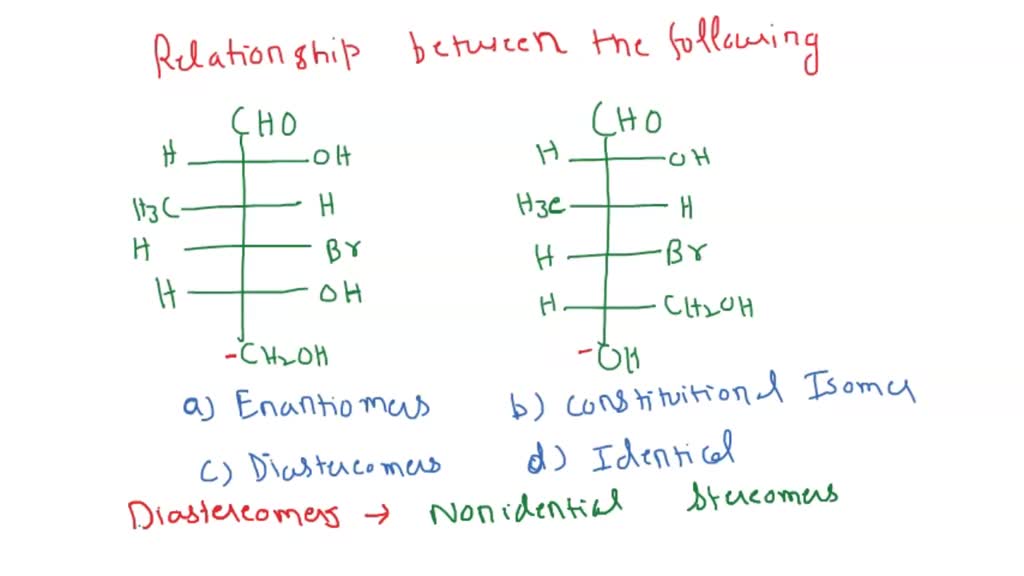 Relationship between the following
CHO CHO
H OH H OH
H3C H H3C H
H Br H Br
H OH H CH2OH
-CH2OH -OH
a) Enantiomers b) Constituitional Isomer
c) Diastereomers d) Identical
Diastereomers → Nonidential Stereomers